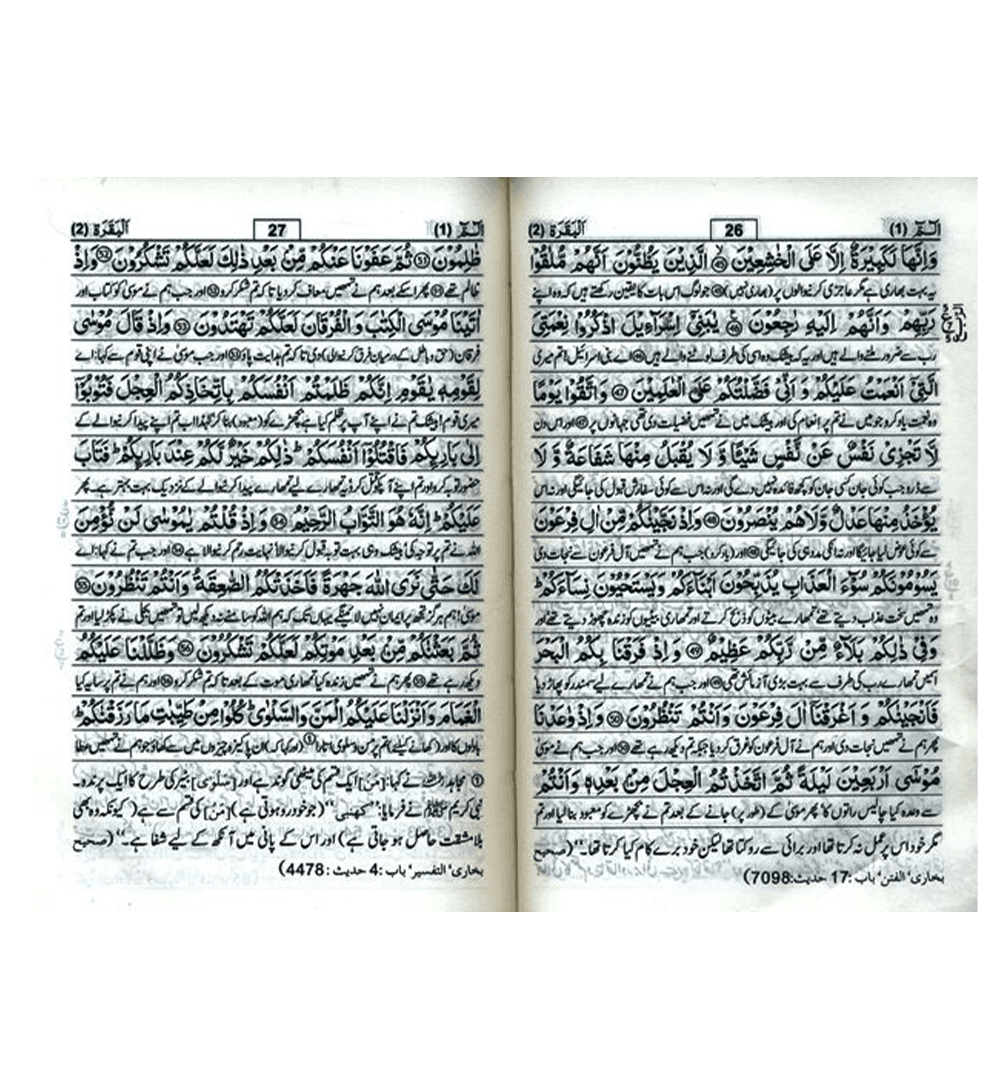 الٓمّٓ (1) 26 اَلْبَقَرَة (2)
وَاِنَّهَا لَكَبِيْرَةٌ اِلَّا عَلَى الْخٰشِعِيْنَ ﴿45﴾ الَّذِيْنَ يَظُنُّوْنَ اَنَّهُمْ مُّلٰقُوْا
یہ بہت بھاری ہے مگر عاجزی کرنے والوں پر (بھاری نہیں) ﴿45﴾ جو لوگ اس بات کا یقین رکھتے ہیں کہ وہ اپنے
رَبِّهِمْ وَاَنَّهُمْ اِلَيْهِ رٰجِعُوْنَ ﴿46﴾ يٰبَنِيْٓ اِسْرَآءِيْلَ اذْكُرُوْا نِعْمَتِيَ
رب سے ضرور ملنے والے ہیں اور یہ کہ بیشک وہ اسی کی طرف لوٹنے والے ہیں ﴿46﴾ اے بنی اسرائیل! تم میری
الَّتِيْٓ اَنْعَمْتُ عَلَيْكُمْ وَ اَنِّيْ فَضَّلْتُكُمْ عَلَى الْعٰلَمِيْنَ ﴿47﴾ وَاتَّقُوْا يَوْمًا
وہ نعمت یاد کرو جو میں نے تم پر انعام کی اور بیشک میں نے تمھیں فضیلت دی تھی جہانوں پر ﴿47﴾ اور اس دن
لَّا تَجْزِيْ نَفْسٌ عَنْ نَّفْسٍ شَيْـًٔا وَّ لَا يُقْبَلُ مِنْهَا شَفَاعَةٌ وَّ لَا
سے ڈرو جب کوئی جان کسی جان کو کچھ فائدہ نہیں دے گی اور نہ اس سے کوئی سفارش قبول کی جائیگی اور نہ اس
يُؤْخَذُ مِنْهَا عَدْلٌ وَّلَا هُمْ يُنْصَرُوْنَ ﴿48﴾ وَاِذْ نَجَّيْنٰكُمْ مِّنْ اٰلِ فِرْعَوْنَ
سے کوئی عوض لیا جائیگا اور نہ انکی مدد ہی کی جائیگی ﴿48﴾ اور (یاد کرو) جب ہم نے تمھیں آل فرعون سے نجات دی
يَسُوْمُوْنَكُمْ سُوْٓءَ الْعَذَابِ يُذَبِّحُوْنَ اَبْنَآءَكُمْ وَيَسْتَحْيُوْنَ نِسَآءَكُمْ ؕ
تمھیں سخت عذاب دیتے تھے تمھارے بیٹوں کو ذبح کرتے اور تمھاری بیٹیوں کو زندہ چھوڑ دیتے تھے اور
وَفِيْ ذٰلِكُمْ بَلَآءٌ مِّنْ رَّبِّكُمْ عَظِيْمٌ ﴿49﴾ وَ اِذْ فَرَقْنَا بِكُمُ الْبَحْرَ
اسمیں تمھارے رب کی طرف سے بہت بڑی آزمائش تھی ﴿49﴾ اور جب ہم نے تمھارے لیے سمندر کو پھاڑ دیا
فَاَنْجَيْنٰكُمْ وَ اَغْرَقْنَآ اٰلَ فِرْعَوْنَ وَاَنْتُمْ تَنْظُرُوْنَ ﴿50﴾ وَ اِذْ وٰعَدْنَا
پھر ہم نے تمھیں نجات دی اور ہم نے آل فرعون کو غرق کر دیا جبکہ تم دیکھ رہے تھے ﴿50﴾ اور جب ہم نے موسیٰ
مُوْسٰٓى اَرْبَعِيْنَ لَيْلَةً ثُمَّ اتَّخَذْتُمُ الْعِجْلَ مِنْۢ بَعْدِهٖ وَاَنْتُمْ
سے وعدہ کیا چالیس راتوں کا' پھر موسیٰ کے (طور پر) جانے کے بعد تم نے بچھڑے کو معبود بنا لیا اور تم
مگر خود اس پر عمل نہ کرتا تھا اور برائی سے روکتا تھا لیکن خود برے کام کیا کرتا تھا۔'' (صحیح
بخاری' الفتن' باب: 17 حدیث: 7098)
الٓمّٓ (1) 27 اَلْبَقَرَة (2)
ظٰلِمُوْنَ ﴿51﴾ ثُمَّ عَفَوْنَا عَنْكُمْ مِّنْۢ بَعْدِ ذٰلِكَ لَعَلَّكُمْ تَشْكُرُوْنَ ﴿52﴾ وَاِذْ
ظالم تھے ﴿51﴾ پھر اسکے بعد ہم نے تمھیں معاف کر دیا تاکہ تم شکر کرو ﴿52﴾ اور جب ہم نے موسیٰ کو کتاب اور
اٰتَيْنَا مُوْسَى الْكِتٰبَ وَ الْفُرْقَانَ لَعَلَّكُمْ تَهْتَدُوْنَ ﴿53﴾ وَاِذْ قَالَ مُوْسٰى
فرقان (حق و باطل کے درمیان فرق کرنے والی) دی تاکہ تم ہدایت پاؤ ﴿53﴾ اور جب موسیٰ نے اپنی قوم سے کہا: اے
لِقَوْمِهٖ يٰقَوْمِ اِنَّكُمْ ظَلَمْتُمْ اَنْفُسَكُمْ بِاتِّخَاذِكُمُ الْعِجْلَ فَتُوْبُوْٓا
میری قوم! بیشک تم نے اپنے آپ پر ظلم کیا ہے بچھڑے کو (معبود) بنا کر' لہٰذا اب تم اپنے پیدا کرنے والے کے
اِلٰى بَارِىِٕكُمْ فَاقْتُلُوْٓا اَنْفُسَكُمْ ؕ ذٰلِكُمْ خَيْرٌ لَّكُمْ عِنْدَ بَارِىِٕكُمْ ؕ فَتَابَ
حضور توبہ کرو اور تم اپنے آپکو قتل کرو' یہ تمھارے لیے تمھارے پیدا کرنے والے کے نزدیک بہت بہتر ہے۔ پھر
عَلَيْكُمْ ؕ اِنَّهٗ هُوَ التَّوَّابُ الرَّحِيْمُ ﴿54﴾ وَ اِذْ قُلْتُمْ يٰمُوْسٰى لَنْ نُّؤْمِنَ
اللہ نے تم پر توجہ کی' بیشک وہی بہت توبہ قبول کرنے والا' نہایت رحم کرنے والا ہے ﴿54﴾ اور جب تم نے کہا: اے
لَكَ حَتّٰى نَرَى اللّٰهَ جَهْرَةً فَاَخَذَتْكُمُ الصّٰعِقَةُ وَاَنْتُمْ تَنْظُرُوْنَ ﴿55﴾
موسیٰ! ہم ہرگز تجھ پر ایمان نہیں لائیں گے یہاں تک کہ ہم اللہ کو سامنے نہ دیکھ لیں' تو تمھیں بجلی نے پکڑ لیا اور تم
ثُمَّ بَعَثْنٰكُمْ مِّنْۢ بَعْدِ مَوْتِكُمْ لَعَلَّكُمْ تَشْكُرُوْنَ ﴿56﴾ وَظَلَّلْنَا عَلَيْكُمُ
دیکھ رہے تھے ﴿55﴾ پھر ہم نے تمھیں زندہ کیا تمھاری موت کے بعد تاکہ تم شکر کرو ﴿56﴾ اور ہم نے تم پر سایہ کیا
الْغَمَامَ وَاَنْزَلْنَا عَلَيْكُمُ الْمَنَّ وَالسَّلْوٰى ؕ كُلُوْا مِنْ طَيِّبٰتِ مَا رَزَقْنٰكُمْ ؕ
بادلوں کا اور (کھانے کیلئے) تم پر من و سلویٰ اتارا ① (اور کہا کہ) ان پاکیزہ چیزوں میں سے کھاؤ جو ہم نے تمھیں عطا
① مجاہد نے کہا: [مَنّ] ایک قسم کی میٹھی گوند ہے اور [سَلْوٰى] بٹیر کی طرح کا ایک پرندہ۔
نبی کریم ﷺ نے فرمایا: ''کھمبی'' (جو خودرو ہوتی ہے) [مَنّ] کی قسم سے ہے (کیونکہ وہ بھی
بلا مشقت حاصل ہو جاتی ہے) اور اس کے پانی میں آنکھ کے لیے شفا ہے۔'' (صحیح
بخاری' التفسیر' باب: 4 حدیث: 4478)